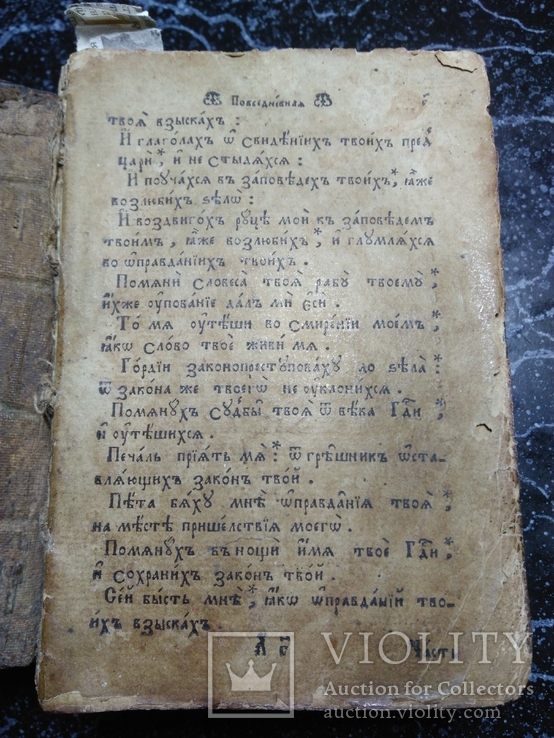 Повседне́внаѧ
твоѧ̀ взыска́хъ :
И҆ глаго́лахъ ѡ҆ свидѣ́нїихъ твои́хъ пред̾
цари̑ * , и҆ не стыдѧ́хсѧ :
И҆ поꙋча́хсѧ въ за́повѣдехъ твои́хъ * , ꙗ҆̀же
возлюби́хъ ѕѣлѡ̀ :
И҆ воздвиго́хъ рꙋ́цѣ моѝ къ за́повѣдемъ
твои̑мъ , ꙗ҆̀же возлюби́хъ * , и҆ глꙋмлѧ́хсѧ
во ѡ҆правда́нїихъ твои́хъ .
Помѧнѝ словеса̀ твоѧ̀ рабꙋ̀ твоемꙋ̀ *
и҆́хже ᲂу҆пова́нїе да́лъ мѝ є҆сѝ .
То̀ мѧ ᲂу҆тѣ́ши во смире́нїи мое́мъ *
ꙗ҆́кѡ сло́во твоѐ живѝ мѧ .
Го́рдїи законопрестꙋпова́хꙋ до ѕѣла̀ *
ѿ зако́на же твоегѡ̀ не ᲂу҆клони́хсѧ .
Помѧнꙋ́хъ сꙋдбы̑ твоѧ̑ ѿ вѣ́ка Гд҇и *
и҆ ᲂу҆тѣ́шихсѧ .
Печа́ль прїѧ́тъ мѧ̀ * ѿ грѣ́шникъ ѡ҆ста-
влѧ́ющихъ зако́нъ тво́й .
Пѣ́та бѧ́хꙋ мнѣ̀ ѡ҆правда́нїѧ твоѧ̑ *
на мѣ́стѣ прише́лствїѧ моегѡ̀ .
Помѧнꙋ́хъ въ нощѝ и҆́мѧ твоѐ Гд҇и *
и҆ сохрани́хъ зако́нъ тво́й .
Се́й бы́сть мнѣ̀ * ꙗ҆́кѡ ѡ҆правда́нїй тво-
и́хъ взыска́хъ .
Часть
VIOLITY
Auction for Collectors
auction.violity.com